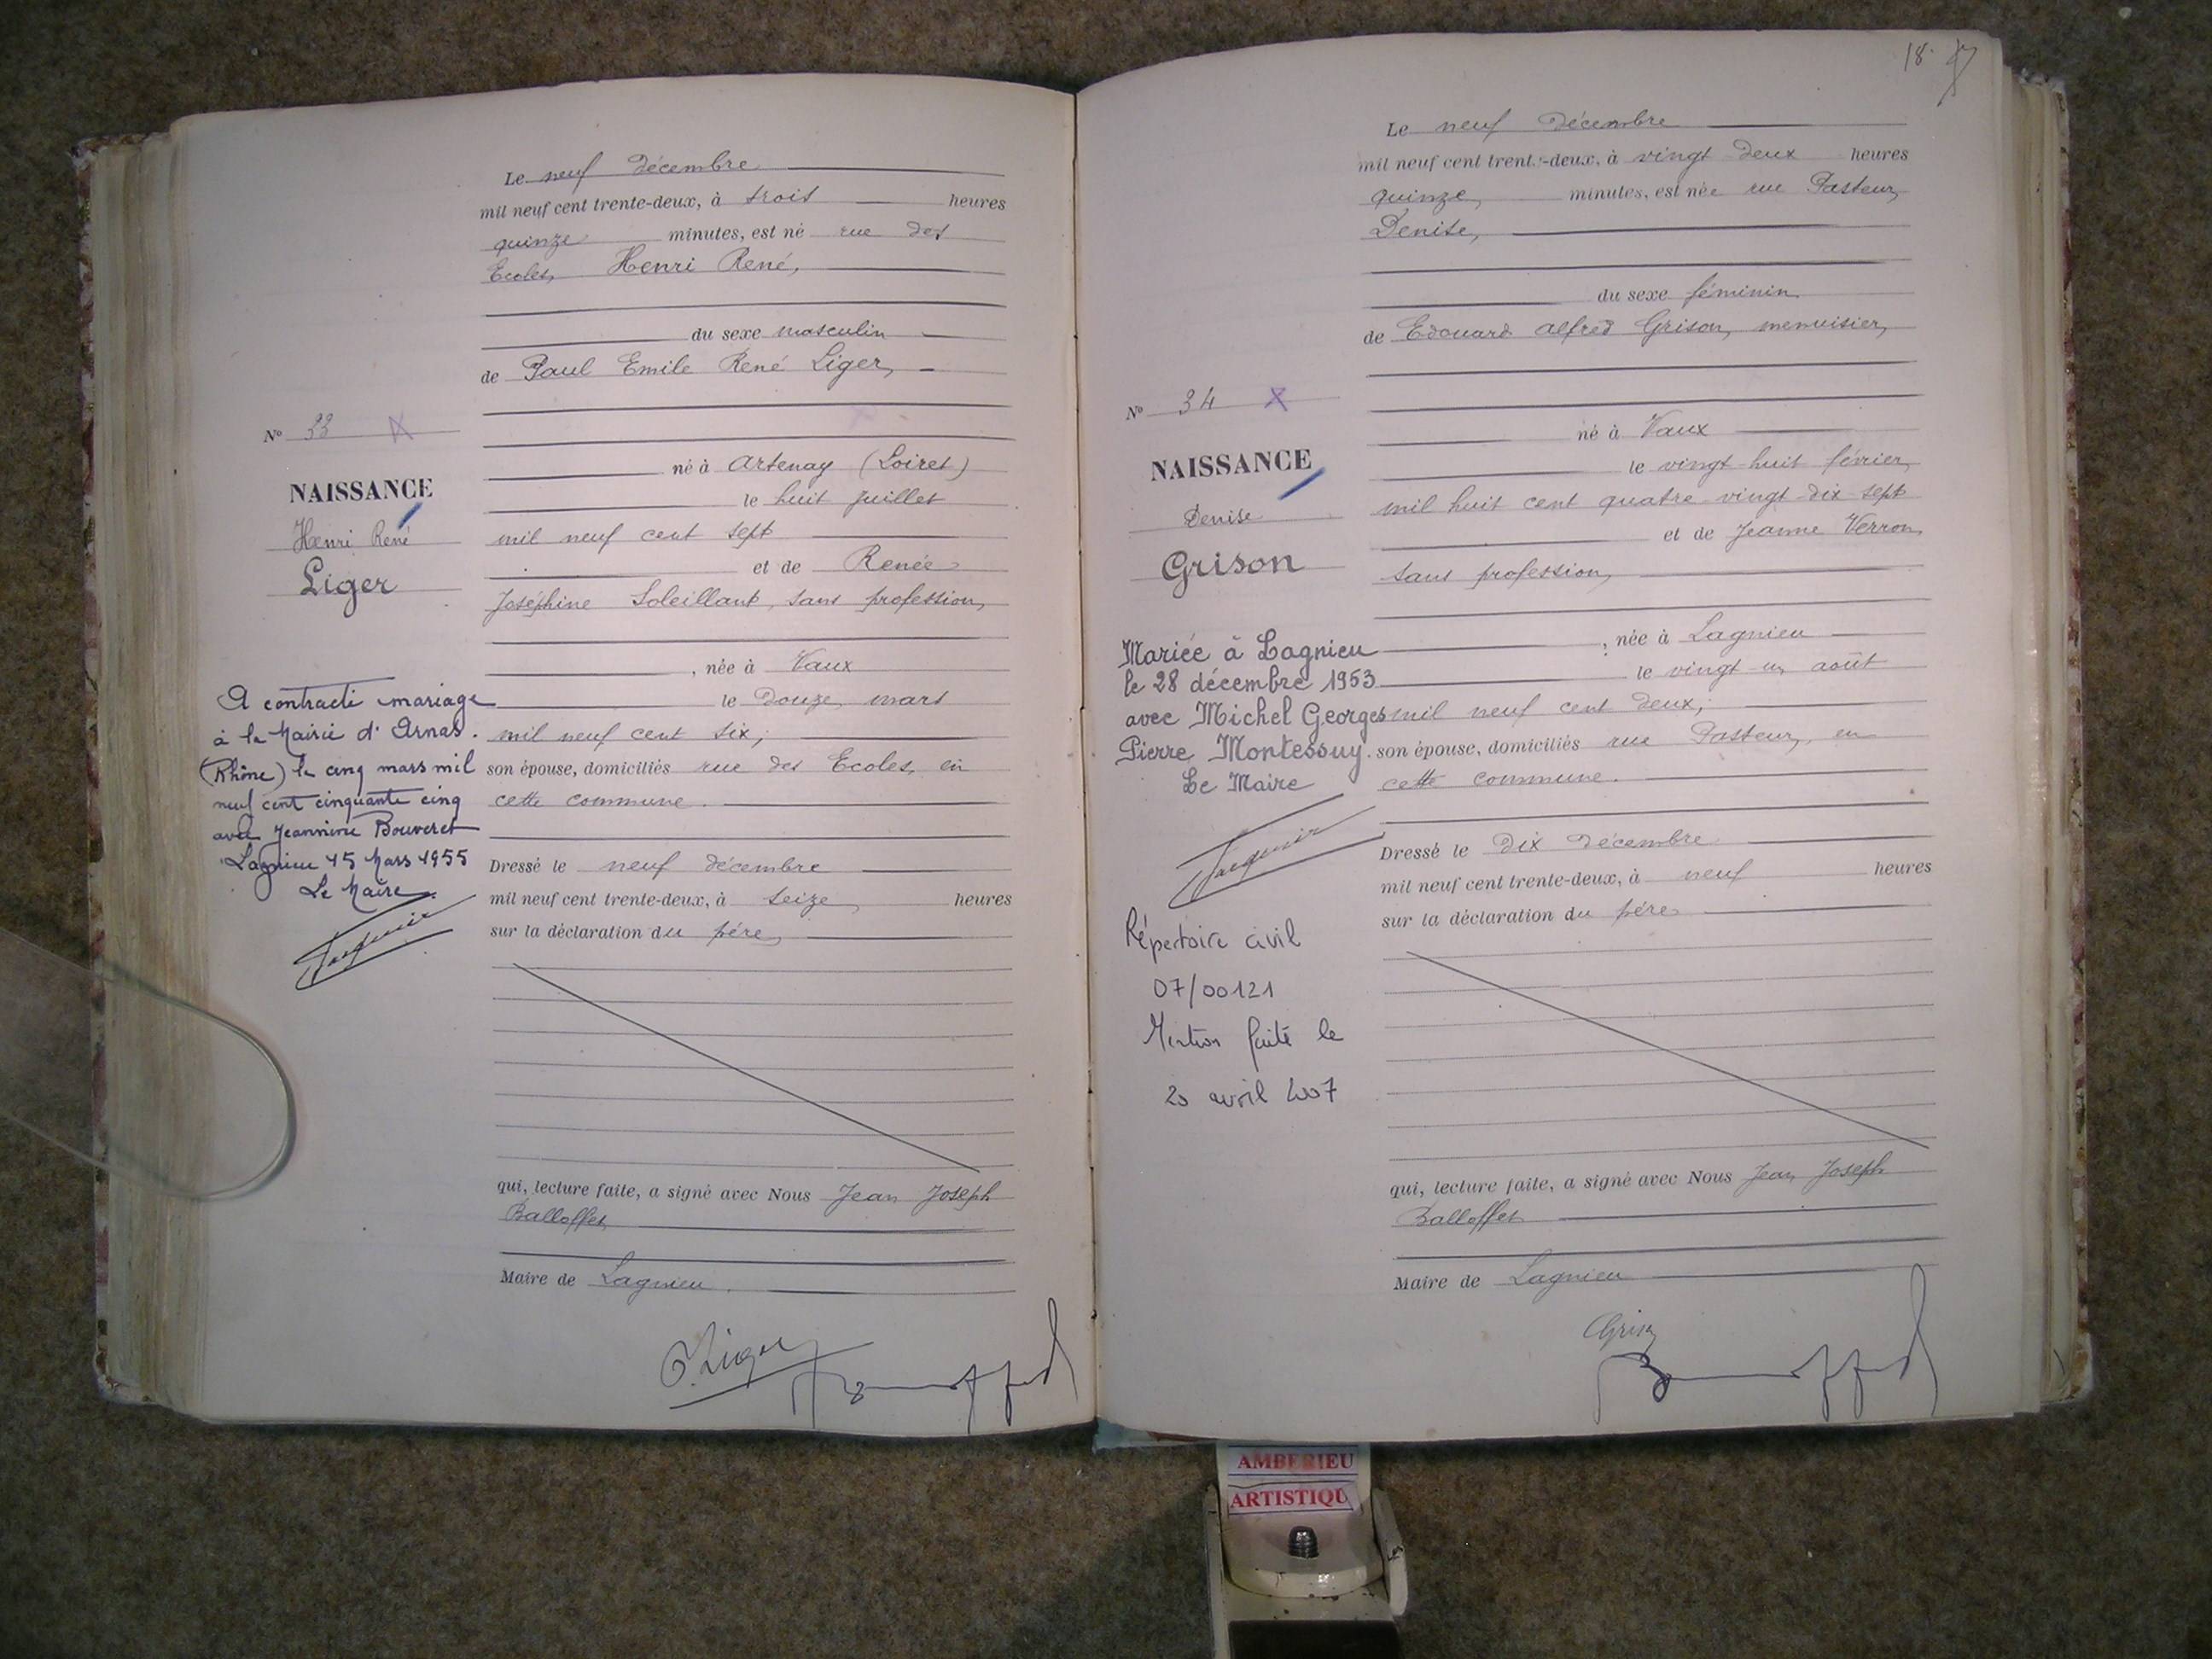 Le neuf décembre
mil neuf cent trente-deux, à trois heures
quinze minutes, est né rue des
Ecoles, Henri René,
du sexe masculin
de Paul Emile René Liger,
né à Artenay (Loiret)
le huit juillet
mil neuf cent sept
et de Renée
Joséphine Soleillant, sans profession,
, née à Vaux
le douze mars
mil neuf cent six,
son épouse, domiciliés rue des Ecoles, en
cette commune.
Dressé le neuf décembre
mil neuf cent trente-deux, à seize heures
sur la déclaration du père,
qui, lecture faite, a signé avec Nous Jean Joseph
Balloffet
Maire de Lagnieu.
P. Liger
N° 33
NAISSANCE
Henri René
Liger
A contracté mariage
à la Mairie d'Arnas.
(Rhône) le cinq mars mil
neuf cent cinquante cinq
avec Jeannine Bouveret
Lagnieu 15 Mars 1955
Le Maire.
18.
Le neuf décembre
mil neuf cent trente-deux, à vingt deux heures
quinze, minutes, est née rue Pasteur,
Denise,
du sexe féminin
de Edouard Alfred Grison, menuisier,
né à Vaux
le vingt-huit février,
mil huit cent quatre-vingt-dix-sept
et de Jeanne Verron,
sans profession,
, née à Lagnieu
le vingt un août
mil neuf cent deux,
son épouse, domiciliés rue Pasteur, en
cette commune.
Dressé le dix décembre
mil neuf cent trente-deux, à neuf heures
sur la déclaration du père
qui, lecture faite, a signé avec Nous Jean Joseph
Balloffet
Maire de Lagnieu
N° 34
NAISSANCE
Denise
Grison
Mariée à Lagnieu
le 28 décembre 1953
avec Michel Georges
Pierre Montessuy.
Le Maire
Répertoire civil
07/00121
Mention faite le
20 avril 2007
AMBERIEU
ARTISTIQU